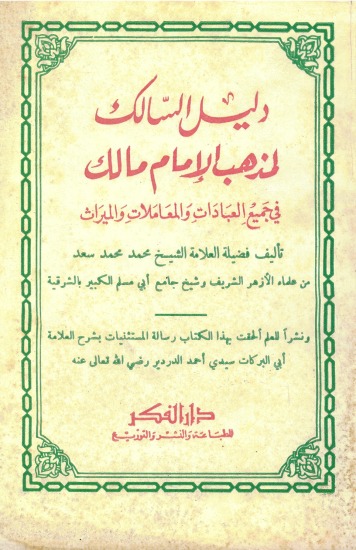 دليل السالك
لمذهب الإمام مالك
في جميع العبادات والمعاملات والميراث
تأليف فضيلة العلامة الشيخ محمد محمد سعد
من علماء الأزهر الشريف وشيخ جامع أبي مسلم الكبير بالشرقية
ونشراً للعلم ألحقت بهذا الكتاب رسالة المستثنيات بشرح العلامة
أبي البركات سيدي أحمد الدردير رضي الله تعالى عنه
دار الفكر
للطباعة والنشر والتوزيع